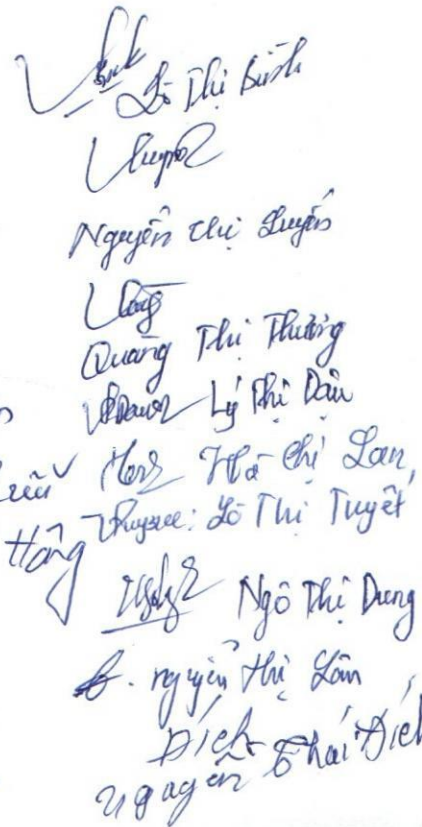 Lò Thị Bình
Nguyễn Thị Luyến
Quàng Thị Thường
Lý Thị Dậu
Hà Thị Lan
Lò Thị Tuyết
Hồng
Ngô Thị Dung
Nguyễn Thị Lân
Đích
Nguyễn Thái Đích